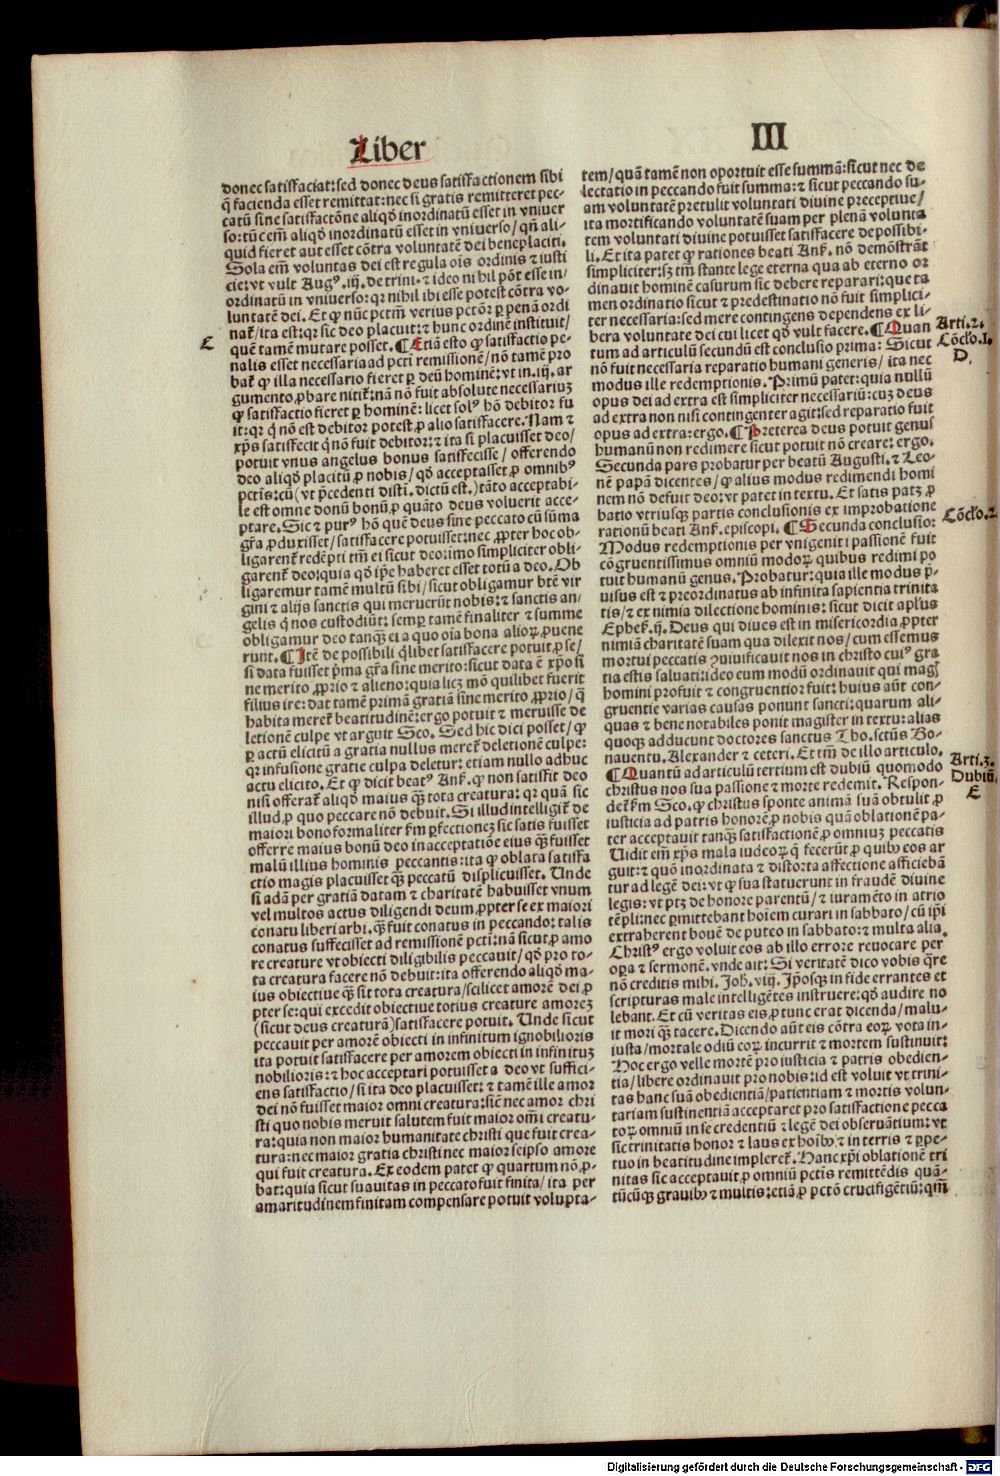 Liber
III
donec satisfaciat: sed donec deus satisfactionem sibi
q̄ facienda esset remittat: nec si gratis remitteret pec-
catū sine satisfactōne aliqd̄ inordinatū esset in vniuer
so: tū cem̄ aliqd̄ inordinatū esset in vniuerso/ qn̄ ali-
quid fieret aut esset cōtra voluntatē dei beneplaciti.
Sola em̄ voluntas dei est regula oīs ordinis ⁊ iusti
cie: vt vult Augꝰ. iij. de trini. ⁊ ideo nihil pōt esse in/
ordinatū in vniuerso: qꝛ nihil ibi esse potest cōtra vo-
luntatē dei. Et ꝙ nūc pctm̄ verius pctōꝝ ꝑ penā ordi
nat᷑/ ita est: qꝛ sic deo placuit: ⁊ hunc ordinē instituit/
C
quē tamē mutare posset. ¶ Etiā esto ꝙ satisfactio pe-
nalis esset necessaria ad pcti remissionē/ nō tamē pro
bat᷑ ꝙ illa necessario fieret ꝑ deū hominē: vt in .iij. ar
gumento ꝓbare nitit᷑: nā nō fuit absolute necessariuꝫ
ꝙ satisfactio fieret ꝑ hominē: licet solꝰ hō debitor fu
it: qꝛ q̄ nō est debitor potest ꝓ alio satisfacere. Nam ⁊
xp̄s satisfecit q̄ nō fuit debitor: ⁊ ita si placuisset deo/
potuit vnus angelus bonus satisfecisse/ offerendo
deo aliqd̄ placitū ꝓ nobis/ qd̄ acceptasset ꝓ omnibꝰ
pctīs: cū (vt p̄cedenti disti. dictū est.) tāto acceptabi-
le est omne donū bonū ꝓ quāto deus voluerit acce-
ptare. Sic ⁊ purꝰ hō quē deus sine peccato cū sūma
gr̄a ꝓduxisset/ satisfacere potuisset: nec ꝓpter hoc ob-
ligarent᷑ redēpti tm̄ ei sicut deo: imo simpliciter obli-
garent᷑ deo: quia qd̄ ip̄e haberet esset totū a deo. Ob
ligaremur tamē multū sibi/ sicut obligamur btē vir
gini ⁊ alijs sanctis qui meruerūt nobis: ⁊ sanctis an-
gelis q̄ nos custodiūt: semꝑ tamē finaliter ⁊ summe
obligamur deo tanq̄ꝫ ei a quo oīa bona alioꝝ ꝓuene
runt. ¶ Itē de possibili q̄libet satisfacere potuit ꝓ se/
si data fuisset p̄ma gr̄a sine merito: sicut data ē xp̄o si
ne merito ꝓprio ⁊ alieno: quia licꝫ mō quilibet fuerit
filius ire: dat tamē primā gratiā sine merito ꝓprio/ q̄
habita meret᷑ beatitudinē: ergo potuit ⁊ meruisse de
letionē culpe vt arguit Sco. Sed hic dici posset/ ꝙ
ꝑ actū elicitū a gratia nullus meret᷑ deletionē culpe:
qꝛ infusione gratie culpa deletur: etiam nullo adhuc
actu elicito. Et ꝙ dicit beatꝰ Ansꝭ. ꝙ non satisfit deo
nisi offerat᷑ aliqd̄ maius q̄ꝫ tota creatura: qꝛ quā sic
illud ꝓ quo peccare nō debuit. Si illud intelligit᷑ de
maiori bono formaliter fm̄ ꝑfectioneꝫ sic satis fuisset
offerre maius bonū deo in acceptatiōe eius q̄ꝫ fuisset
malū illius hominis peccantis: ita ꝙ oblata satisfa
ctio magis placuisset q̄ꝫ peccatū displicuisset. Unde
si adā per gratiā datam ⁊ charitatē habuisset vnum
vel multos actus diligendi deum ꝓpter se ex maiori
conatu liberi arbi. q̄ꝫ fuit conatus in peccando: talis
conatus suffecisset ad remissionē pcti: nā sicut ꝓ amo
re creature vt obiecti diligibilis peccauit/ qd̄ pro to-
ta creatura facere nō debuit: ita offerendo aliqd̄ ma-
ius obiectiue q̄ꝫ sit tota creatura/ scilicet amorē dei ꝓ
pter se: qui excedit obiectiue totius creature amoreꝫ
(sicut deus creaturā) satisfacere potuit. Unde sicut
peccauit per amorē obiecti in infinitum ignobilioris
ita potuit satisfacere per amorem obiecti in infinituꝫ
nobilioris: ⁊ hoc acceptari potuisset a deo vt suffici-
ens satisfactio/ si ita deo placuisset: ⁊ tamē ille amor
dei nō fuisset maior omni creatura: sic̄ nec amor chri
sti quo nobis meruit salutem fuit maior om̄i creatu-
ra: quia non maior humanitate christi que fuit crea-
tura: nec maior gratia christi nec maior seipso amore
qui fuit creatura. Ex eodem patet ꝙ quartum nō ꝓ-
bat: quia sicut suauitas in peccato fuit finita/ ita per
amaritudinem finitam compensare potuit volupta-
tem/ quā tamē non oportuit esse summā: sicut nec de
lectatio in peccando fuit summa: ⁊ sicut peccando su-
am voluntatē pretulit voluntati diuine preceptiue/
ita mortificando voluntatē suam per plenā volunta
tem voluntati diuine potuisset satisfacere de possibi-
li. Et ita patet ꝙ rationes beati Ansꝭ. nō demōstrāt
simpliciter: sꝫ tm̄ stante lege eterna qua ab eterno or
dinauit hominē casurum sic debere reparari: que ta
men ordinatio sicut ⁊ predestinatio nō fuit simplici-
ter necessaria: sed mere contingens dependens ex li-
bera voluntate dei cui licet qd̄ vult facere. ¶ Quan
Arti. 2.
tum ad articulū secundū est conclusio prima: Sicut
Cōclo. 1.
nō fuit necessaria reparatio humani generis/ ita nec
D.
modus ille redemptionis. Primū patet: quia nullū
opus dei ad extra est simpliciter necessariū: cuꝫ deus
ad extra non nisi contingenter agit: sed reparatio fuit
opus ad extra: ergo. ¶ Preterea deus potuit genus
humanū non redimere sicut potuit nō creare: ergo.
Secunda pars probatur per beatū Augusti. ⁊ Leo-
nē papā dicentes/ ꝙ alius modus redimendi homi
nem nō defuit deo: vt patet in textu. Et satis patꝫ ꝓ
batio vtriusqꝫ partis conclusionis ex improbatione
rationū beati Ansꝭ. episcopi. ¶ Secunda conclusio:
Cōclo. 2.
Modus redemptionis per vnigeniti passionē fuit
cōgruentissimus omniū modoꝝ quibus redimi po
tuit humanū genus. Probatur: quia ille modus p̄-
uisus est ⁊ preordinatus ab infinita sapientia trinita
tis/ ⁊ ex nimia dilectione hominis: sicut dicit apl̄us
Ephes. ij. Deus qui diues est in misericordia ꝓpter
nimiā charitatē suam qua dilexit nos/ cum essemus
mortui peccatis ꝯuiuificauit nos in christo cuiꝰ gra
tia estis saluati: ideo eum modū ordinauit qui magꝭ
homini profuit ⁊ congruentior fuit: huius aūt con-
gruentie varias causas ponunt sancti: quarum ali-
quas ⁊ bene notabiles ponit magister in textu: alias
quoqꝫ adducunt doctores sanctus Tho. sctūs Bo-
nauentu. Alexander ⁊ ceteri. Et tm̄ de illo articulo.
¶ Quantū ad articulū tertium est dubiū quomodo
Arti. 3.
Dubiū.
E
christus nos sua passione ⁊ morte redemit. Respon-
det᷑ fm̄ Sco. ꝙ christus sponte animā suā obtulit ꝓ
iusticia ad patris honorē ꝓ nobis quā oblationē pa-
ter acceptauit tanq̄ꝫ satisfactionē ꝓ omniuꝫ peccatis
Uidit em̄ xp̄s mala iudeoꝝ q̄ fecerūt ꝓ quibꝫ eos ar
guit: ⁊ quō inordinata ⁊ distorta affectione afficiebā
tur ad legē dei: vt ꝙ sua statuerunt in fraudē diuine
legis: vt ptꝫ de honore parentū/ ⁊ iuramēto in atrio
tēpli: nec ꝑmittebant hoīem curari in sabbato/ cū ip̄i
extraherent bouē de puteo in sabbato: ⁊ multa alia.
Christꝰ ergo voluit eos ab illo errore reuocare per
oꝑa ⁊ sermonē. vnde ait: Si veritatē dico vobis q̄re
nō creditis mihi. Joh. viij. Jp̄osqꝫ in fide errantes et
scripturas male intelligētes instruere: qd̄ audire no
lebant. Et cū veritas eis ꝓ tunc erat dicenda/ malu-
it mori q̄ꝫ tacere. Dicendo aūt eis cōtra eoꝝ vota in-
iusta/ mortale odiū eoꝝ incurrit ⁊ mortem sustinuit:
Hoc ergo velle mortē pro iusticia ⁊ patris obedien-
tia/ libere ordinauit pro nobis: id est voluit vt trini-
tas hanc suā obedientiā/ patientiam ⁊ mortis volun-
tariam sustinentiā acceptaret pro satisfactione pecca
toꝝ omniū in se credentiū ⁊ legē dei obseruātium: vt
sic trinitatis honor ⁊ laus ex hoībꝫ ⁊ in terris ⁊ ꝑpe-
tuo in beatitudine impleret᷑. Hanc xp̄i oblationē tri
nitas sic acceptauit ꝓ omniū pctīs remittēdis quā-
tūcūqꝫ grauibꝫ ⁊ multis: etiā ꝓ pctō crucifigētiū: qm̄
Digitalisierung gefördert durch die Deutsche Forschungsgemeinschaft - DFG